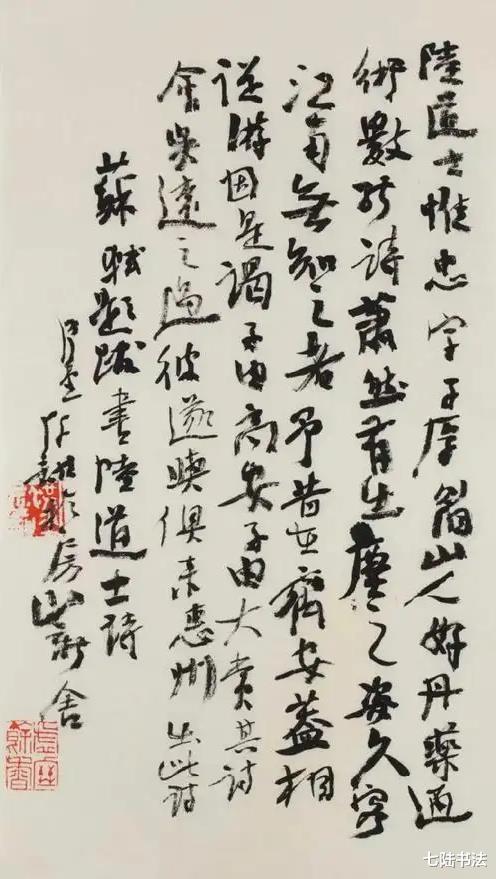 陸道士惟忠字子厚眉山人好丹藥通
術數能詩蕭然有出塵之姿久客
江南無知之者予昔在齊安蓋相
從游因是謁子由高安子由大賞其詩
會吳遠之過彼遂與俱來惠州出此詩
蘇軾題跋書陸道士詩
房山新舍
七陆书法